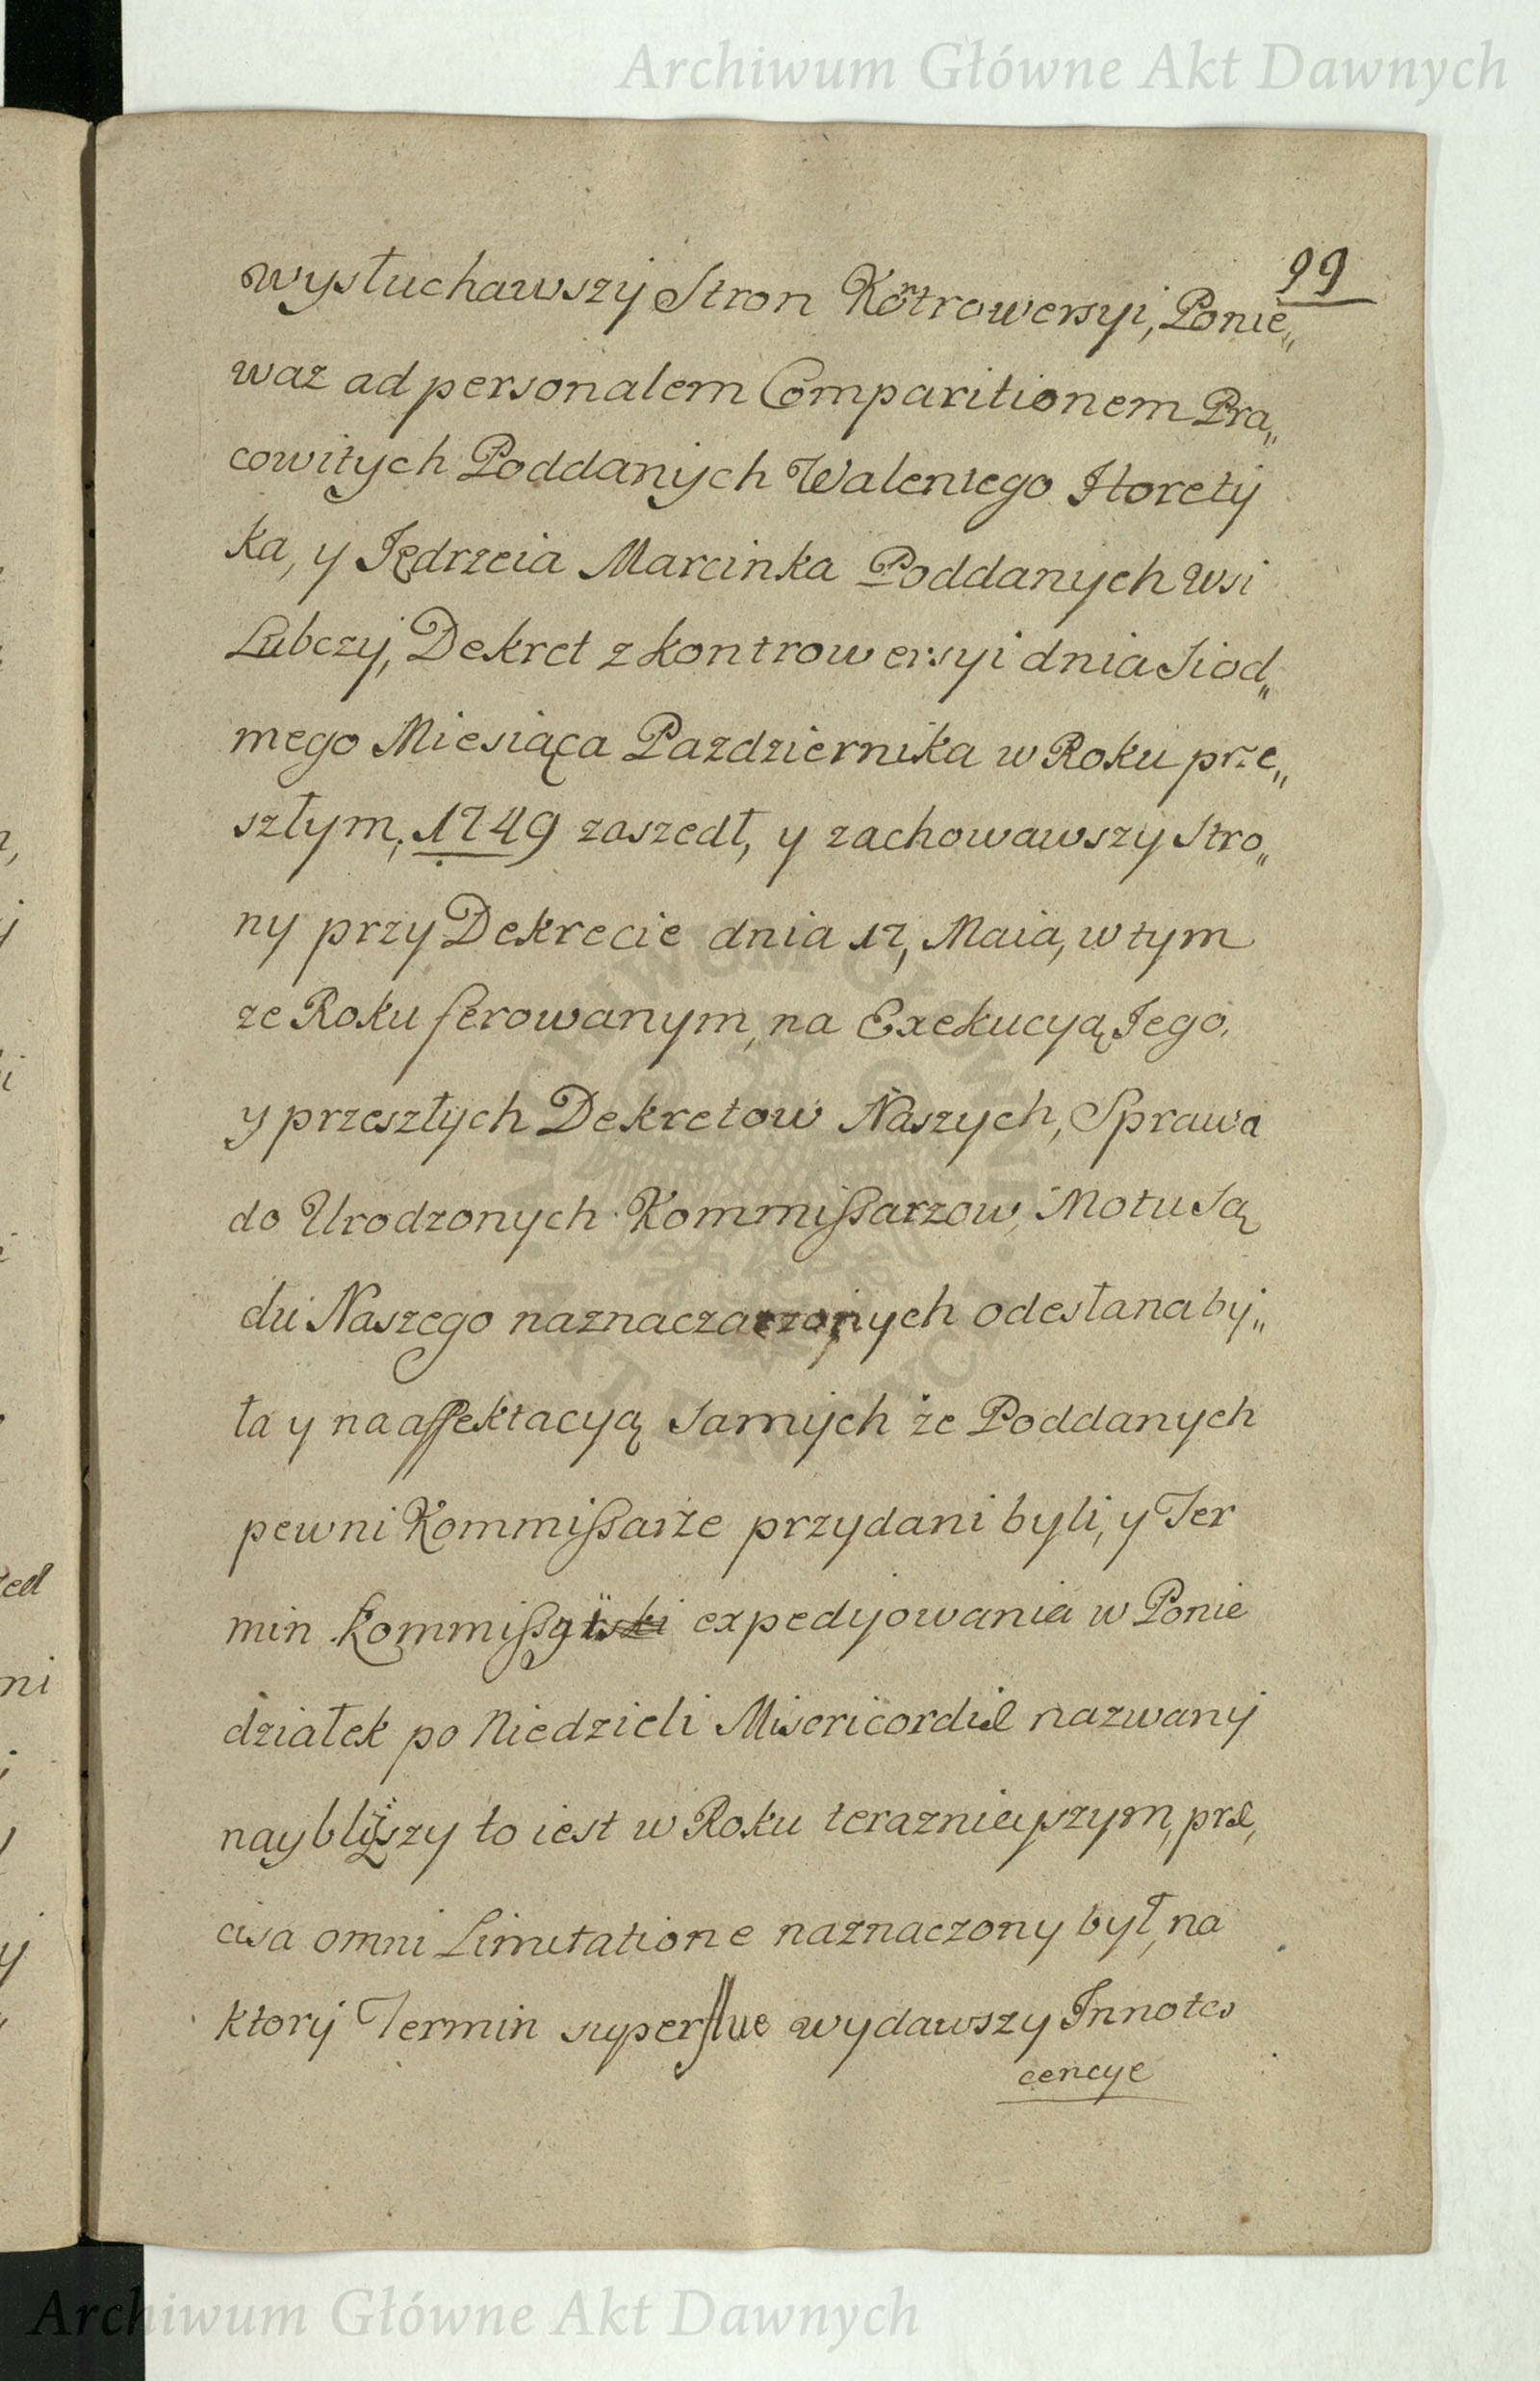 Archiwum Główne Akt Dawnych
99
wysłuchawszy Stron Kontrowersyi, Ponie„
waz ad personalem Comparitionem Pra„
cowitych Poddanych Walentego Horety
ka, y Jędrzeia Marcinka Poddanych wsi
Lubczy, Dekret z kontrowersyi dnia Siod„
mego Miesiąca Pazdziernika w Roku prze„
szłym, 1749 zaszedł, y zachowawszy Stro„
ny przy Dekrecie dnia 17, Maia, w tym
ze Roku ferowanym, na Exekucyą Jego,
y przeszłych Dekretow Naszych, Sprawa
do Urodzonych Kommissarzow, Motu Są
du Naszego odesłana by„
ła y na affektacyą samych że Poddanych
pewni Kommissarże przydani byli, y Ter
min expedyowania w Ponie
działek po Niedzieli Misericordiæ nazwany
naybliższy to iest w Roku teraznieyszym, præ,
cisa omni Limitatione naznaczony był, na
ktory Termin superflue wydawszy Innotes
cencye
Archiwum Główne Akt Dawnych